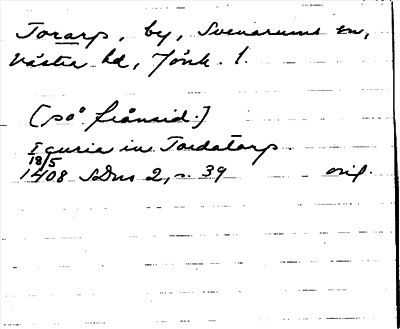 Torarp, by, Svenarums sn,
Västra hd, Jönk. l.
[på frånsid.]
I curia in Tordatorp
18/5
1408 SDns 2, s. 39 orig.